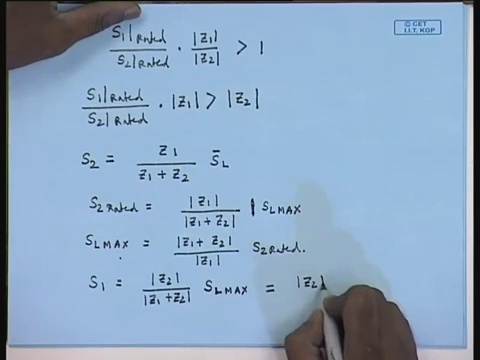 © CET
I.I.T. KGP
S1|Rated / S2|Rated · |Z1| / |Z2| > 1
S1|Rated / S2|Rated · |Z1| > |Z2|
S2 = Z1 / (Z1 + Z2) S̄L
S2 Rated = |Z1| / |Z1 + Z2| | SLMAX
SLMAX = |Z1 + Z2| / |Z1| S2 Rated.
S1 = |Z2| / |Z1 + Z2| SLMAX = |Z2|